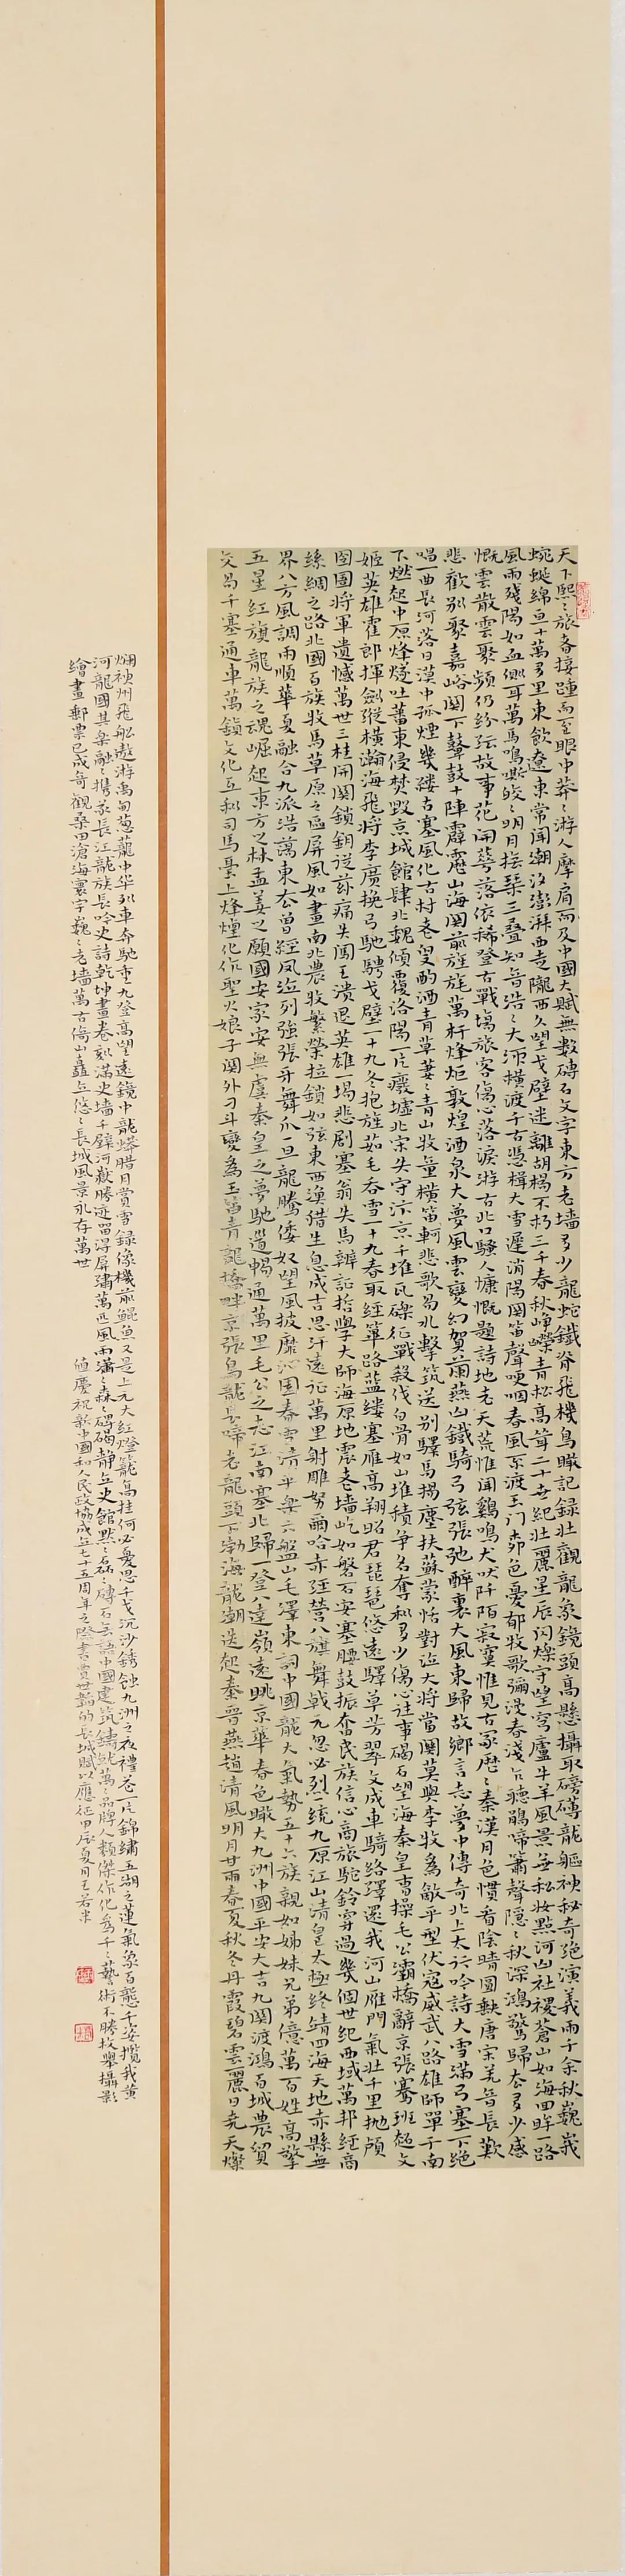 天下熙〻旅者接踵而至眼中莽〻游人摩肩而及中國大賦無數磚石文字東方老墙多少龍蛇鐵脊飛機鳥瞰記録壯觀龍象鏡頭高懸攝取磅礴龍軀神秘奇绝演義兩千余秋巍峩
蜿蜒綿亘十萬多里東飲遼東常聞潮汐澎湃西走隴西久望戈壁迷離胡楊不朽三千春秋崢嶸青松高聳二十世紀壯麗星辰闪爍守望穹廬牛羊風景無私妝點河山社稷蒼山如海回眸一路
風雨殘陽如血側耳萬馬鳴嘶皎〻明月撫琴三叠知音浩〻大河横渡千古憑楫大雪遲消陽関笛聲哽咽春風不渡玉门暮色憂郁牧歌彌漫春淺聽鵑啼簫聲隐〻秋深鴻驚歸去多少感
慨雲散雲聚頻仍紛纭故事花開蕚落依稀登古戰塲旅客傷心落淚游古北口騷人慷慨題詩地老天荒惟聞鷄鳴犬吠阡陌寂寞惟見古冢歷〻秦漢月色慣看陰晴圆缺唐宋羌音長歎
悲歡别聚嘉峪関下鼙鼓十陣霹靂山海関前旌旄萬杆烽炬敦煌酒泉大夢風雲變幻賀蘭燕山鐵騎弓弦張弛醉裏大風東歸故鄉言志夢中傳奇北上太行吟詩大雪滿弓塞下绝
唱一曲長河落日漠中孤煙幾縷古塞風化古村老叟酌酒青草萋〻青山牧童横笛軻悲歌易水擊筑送别驛馬揚塵扶蘇蒙恬對泣大將當関莫與李牧為敵平型伏寇威武八路雄師單于南
下燃起中原烽燧吐蕃東侵焚毁京城館肆北魏傾覆洛陽一片癈墟北宋失守汴京千堆瓦礫征戰殺伐白骨如山堆積争名奪利多少傷心往事碣石望海秦皇曹操毛公灞橋辭京張騫班超文
姬英雄霍郎揮劍縱横瀚海飛將李廣挽弓馳騁戈壁十九冬抱旌茹毛吞雪一十九春取經篳路藍缕塞雁高翔昭君琵琶悠遠驛草芳翠文成車騎絡繹還我河山雁門氣壯千里抛顱
圄圄將軍遺憾萬世三桂開関鎖鑰從兹痛失闖王潰退英雄塲悲剧塞翁失馬辨証哲學大師海原地震老墙屹如磐石安塞腰鼓振奮民族信心商旅駝鈴穿過幾個世紀西域萬邦經商
絲綢之路北國百族牧馬草原之區屏風如畫南北農牧繁榮拉鎖如弦東西漁猎生息成吉思汗遠征萬里射雕努爾哈赤經营八旗舞戟元忽必烈一統九原江山清皇太極终靖四海天地赤縣無
界八方風調雨順華夏融合九派浩蕩東去曾經凤泣列強張牙舞爪一旦龍騰倭奴望風披靡沁園春雪清平樂六盤山毛澤東詞中國龍大氣勢五十六族親如姊妹兄弟億萬百姓高擎
五星红旗龍族之魂崛起東方之林孟姜之願國安家安無虞秦皇之夢馳道暢通萬里毛公之志江南塞北歸一登八達嶺遠眺京華春色瞰大九洲中國平安大吉九関渡鴻百城農貿
交易千塞通車萬鎮文化互利司馬臺上烽煌化作聖火娘子関外刁斗變為玉笛青龍橋畔京張鳥龍長啼老龍頭下渤海龍潮迭起秦晉燕趙清風明月甘雨春夏秋冬丹霞碧雲麗日堯天燦
爛神州飛船遨游禹甸葱蘢中华列車奔馳重九登高望遠鏡中龍蟒腊月赏雪録像機前鯤魚又是上元大紅燈籠高挂何必憂思千戈沉沙銹蝕九洲之夜禮花一片錦繡五湖之蓮氣象百態千姿攬我黄
河龍國其樂融〻携家長江龍族長吟史詩乾坤畫卷刻滿史墙千壁河嶽勝迹留得屏藩萬匹風雨瀟〻森〻碑碣静立史館點〻石砾〻磚石無語中國建筑鑄就萬〻品牌人類傑作化為千〻藝術不勝枚舉攝影
繪畫郵票已成奇觀桑田滄海寰宇巍〻老墙萬古傷山矗立悠〻長城風景永存萬世
值慶祝新中國和人民政協成立七十五周年之際書賈世韜的長城賦以應征甲辰夏月王若米